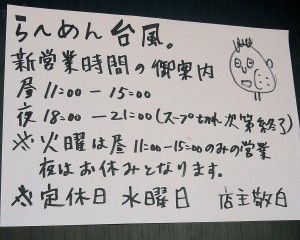 らーめん台風。
新営業時間の御案内
昼 11:00 ー 15:00
夜 18:00 ー 21:00 (スープ切れ次第終了)
※火曜は昼11:00-15:00のみの営業
夜はお休みとなります。
※定休日 水曜日 店主敬白